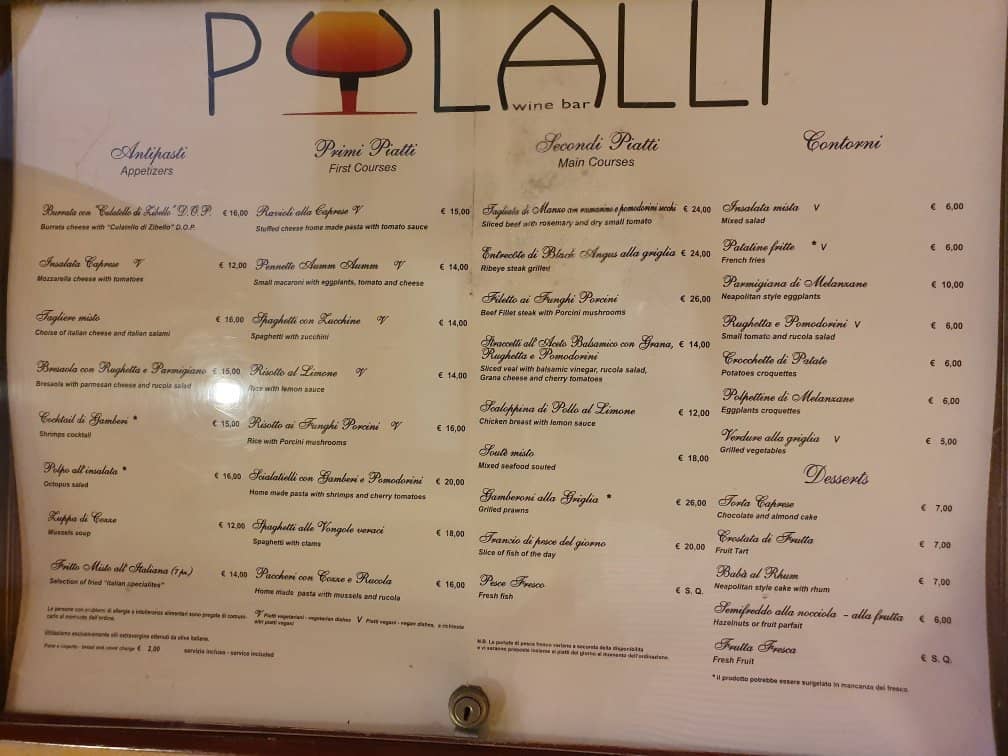 POLALLI
wine bar
Antipasti
Appetizers
Burrata con "Culatello di Zibello" D.O.P. € 16,00
Burrata cheese with "Culatello di Zibello" D.O.P.
Insalata Caprese V € 12,00
Mozzarella cheese with tomatoes
Tagliere misto € 16,00
Choise of italian cheese and italian salami
Bresaola con Rughetta e Parmigiano € 15,00
Bresaola with parmesan cheese and rucola salad
Cocktail di Gamberi * € 15,00
Shrimps cocktail
Polpo all'insalata * € 16,00
Octopus salad
Zuppa di Cozze € 12,00
Mussels soup
Fritto Misto all'Italiana (7 pz.) € 14,00
Selection of fried "italian specialites"
Primi Piatti
First Courses
Ravioli alla Caprese V € 15,00
Stuffed cheese home made pasta with tomato sauce
Pennette Aumm Aumm V € 14,00
Small macaroni with eggplants, tomato and cheese
Spaghetti con Zucchine V € 14,00
Spaghetti with zucchini
Risotto al Limone V € 14,00
Rice with lemon sauce
Risotto ai Funghi Porcini V € 16,00
Rice with Porcini mushrooms
Scialatielli con Gamberi e Pomodorini € 20,00
Home made pasta with shrimps and cherry tomatoes
Spaghetti alle Vongole veraci € 18,00
Spaghetti with clams
Paccheri con Cozze e Rucola € 16,00
Home made pasta with mussels and rucola
Secondi Piatti
Main Courses
Tagliata di Manzo con rosmarino e pomodorini secchi € 24,00
Sliced beef with rosemary and dry small tomato
Entrecôte di Black Angus alla griglia € 24,00
Ribeye steak grilled
Filetto ai Funghi Porcini € 26,00
Beef Fillet steak with Porcini mushrooms
Straccetti all'Aceto Balsamico con Grana, € 14,00
Rughetta e Pomodorini
Sliced veal with balsamic vinegar, rucola salad,
Grana cheese and cherry tomatoes
Scaloppina di Pollo al Limone € 12,00
Chicken breast with lemon sauce
Soutè misto € 18,00
Mixed seafood souted
Gamberoni alla Griglia * € 26,00
Grilled prawns
Trancio di pesce del giorno € 20,00
Slice of fish of the day
Pesce Fresco € S. Q.
Fresh fish
Contorni
Insalata mista V € 6,00
Mixed salad
Patatine fritte * V € 6,00
French fries
Parmigiana di Melanzane € 10,00
Neapolitan style eggplants
Rughetta e Pomodorini V € 6,00
Small tomato and rucola salad
Crocchette di Patate € 6,00
Potatoes croquettes
Polpettine di Melanzane € 6,00
Eggplants croquettes
Verdure alla griglia V € 5,00
Grilled vegetables
Desserts
Torta Caprese € 7,00
Chocolate and almond cake
Crostata di Frutta € 7,00
Fruit Tart
Babà al Rhum € 7,00
Neapolitan style cake with rhum
Semifreddo alla nocciola - alla frutta € 6,00
Hazelnuts or fruit parfait
Frutta Fresca € S. Q.
Fresh Fruit
* il prodotto potrebbe essere surgelato in mancanza del fresco.
Le persone con problemi di allergia o intolleranza alimentari sono pregate di comuni-
carlo al momento dell'ordine.
Utilizziamo esclusivamente olii extravergine ottenuti da olive italiane.
Pane e coperto - bread and cover charge € 2,00 servizio incluso - service included
V Piatti vegetariani - vegetarian dishes V Piatti vegani - vegan dishes, a richiesta
altri piatti vegani
N.B. Le portate di pesce fresco variano a seconda della disponibilità
e vi saranno proposte insieme ai piatti del giorno al momento dell'ordinazione.